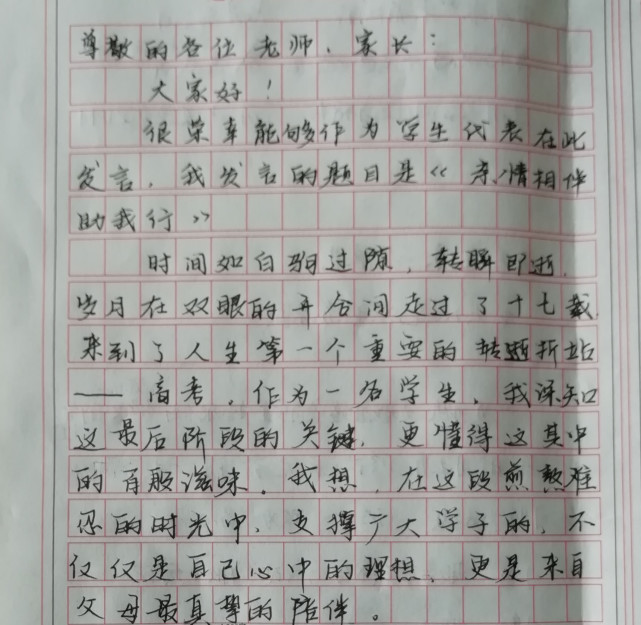 尊敬的各位老师、家长：
大家好！
很荣幸能够作为学生代表在此
发言，我发言的题目是《亲情相伴
助我行》
时间如白驹过隙，转瞬即逝，
岁月在双眼的开合间走过了十七载
来到了人生第一个重要的转折站
——高考，作为一名学生，我深知
这最后阶段的关键，更懂得这其中
的百般滋味。我想，在这段煎熬难
忍的时光中，支撑广大学子的，不
仅仅是自己心中的理想，更是来自
父母最真挚的陪伴。